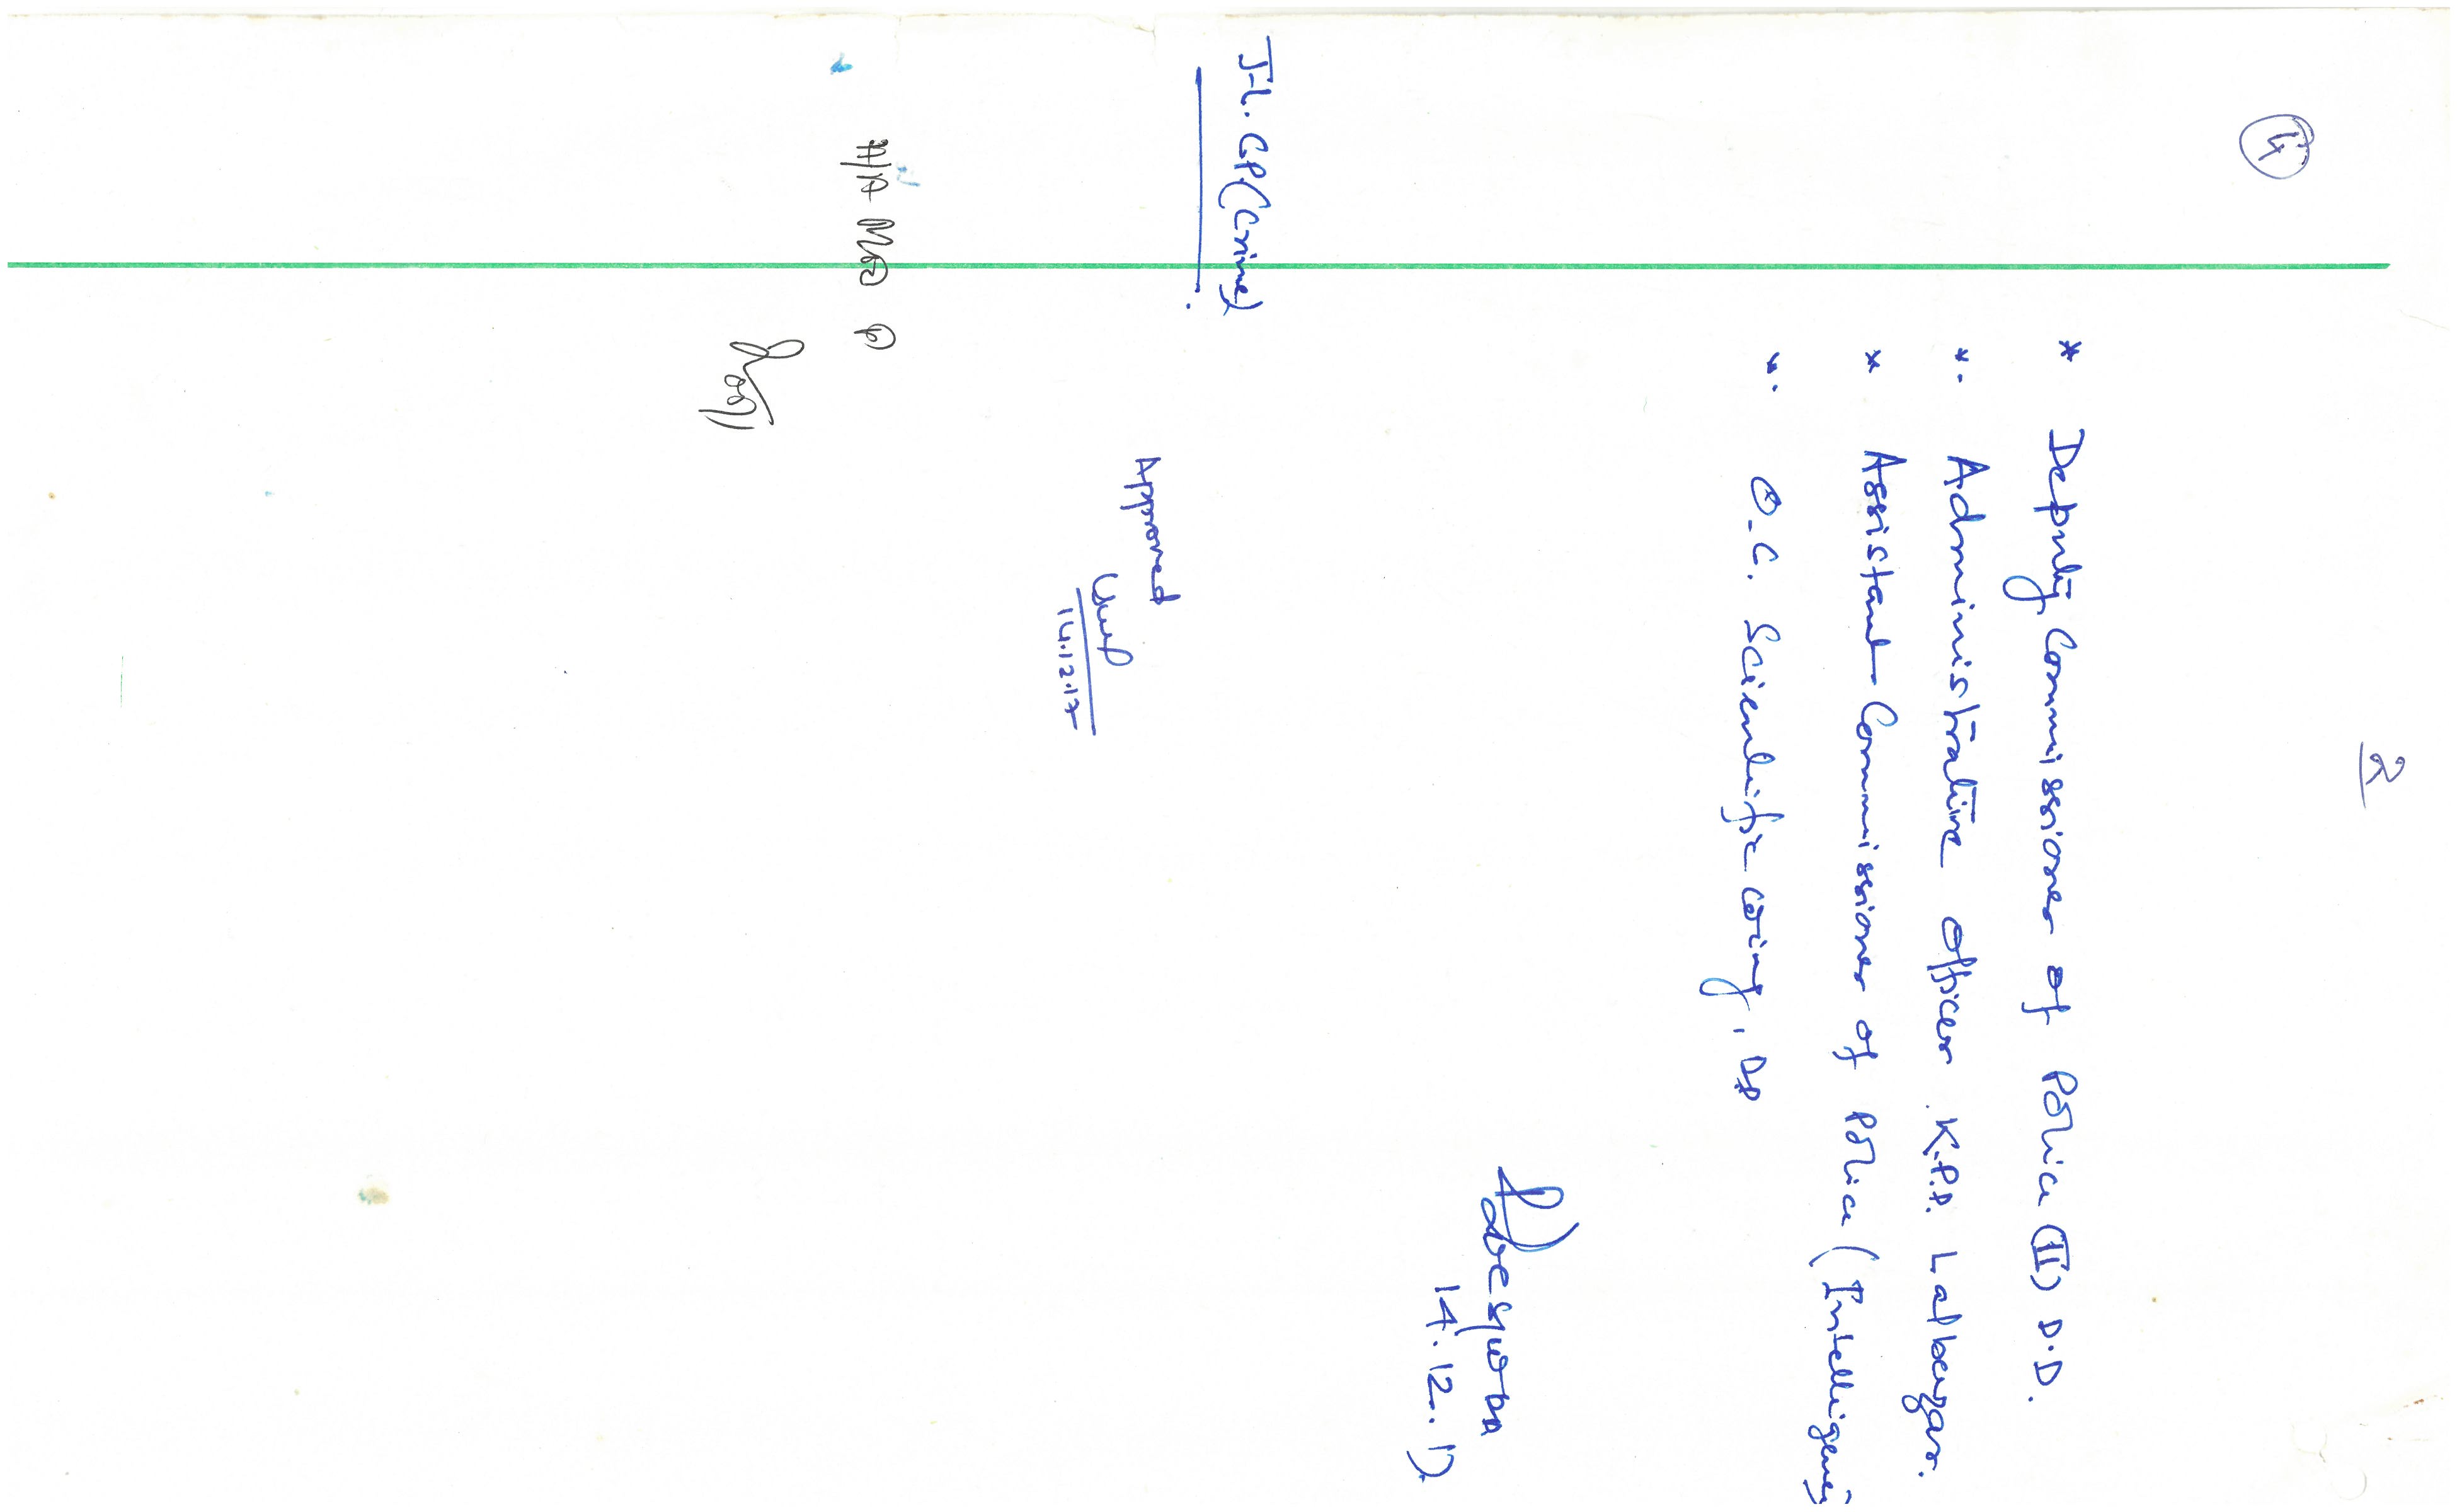 2
4
* Deputy Commissioner of Police (II) D.D.
*. Administrative Officer K.P.D. Lalbazar.
* Assistant Commissioner of Police (Intelligence)
*. O.C. Scientific wing, DD
14.12.17
Jt. CP. (Crime)
Approved
14.12.17